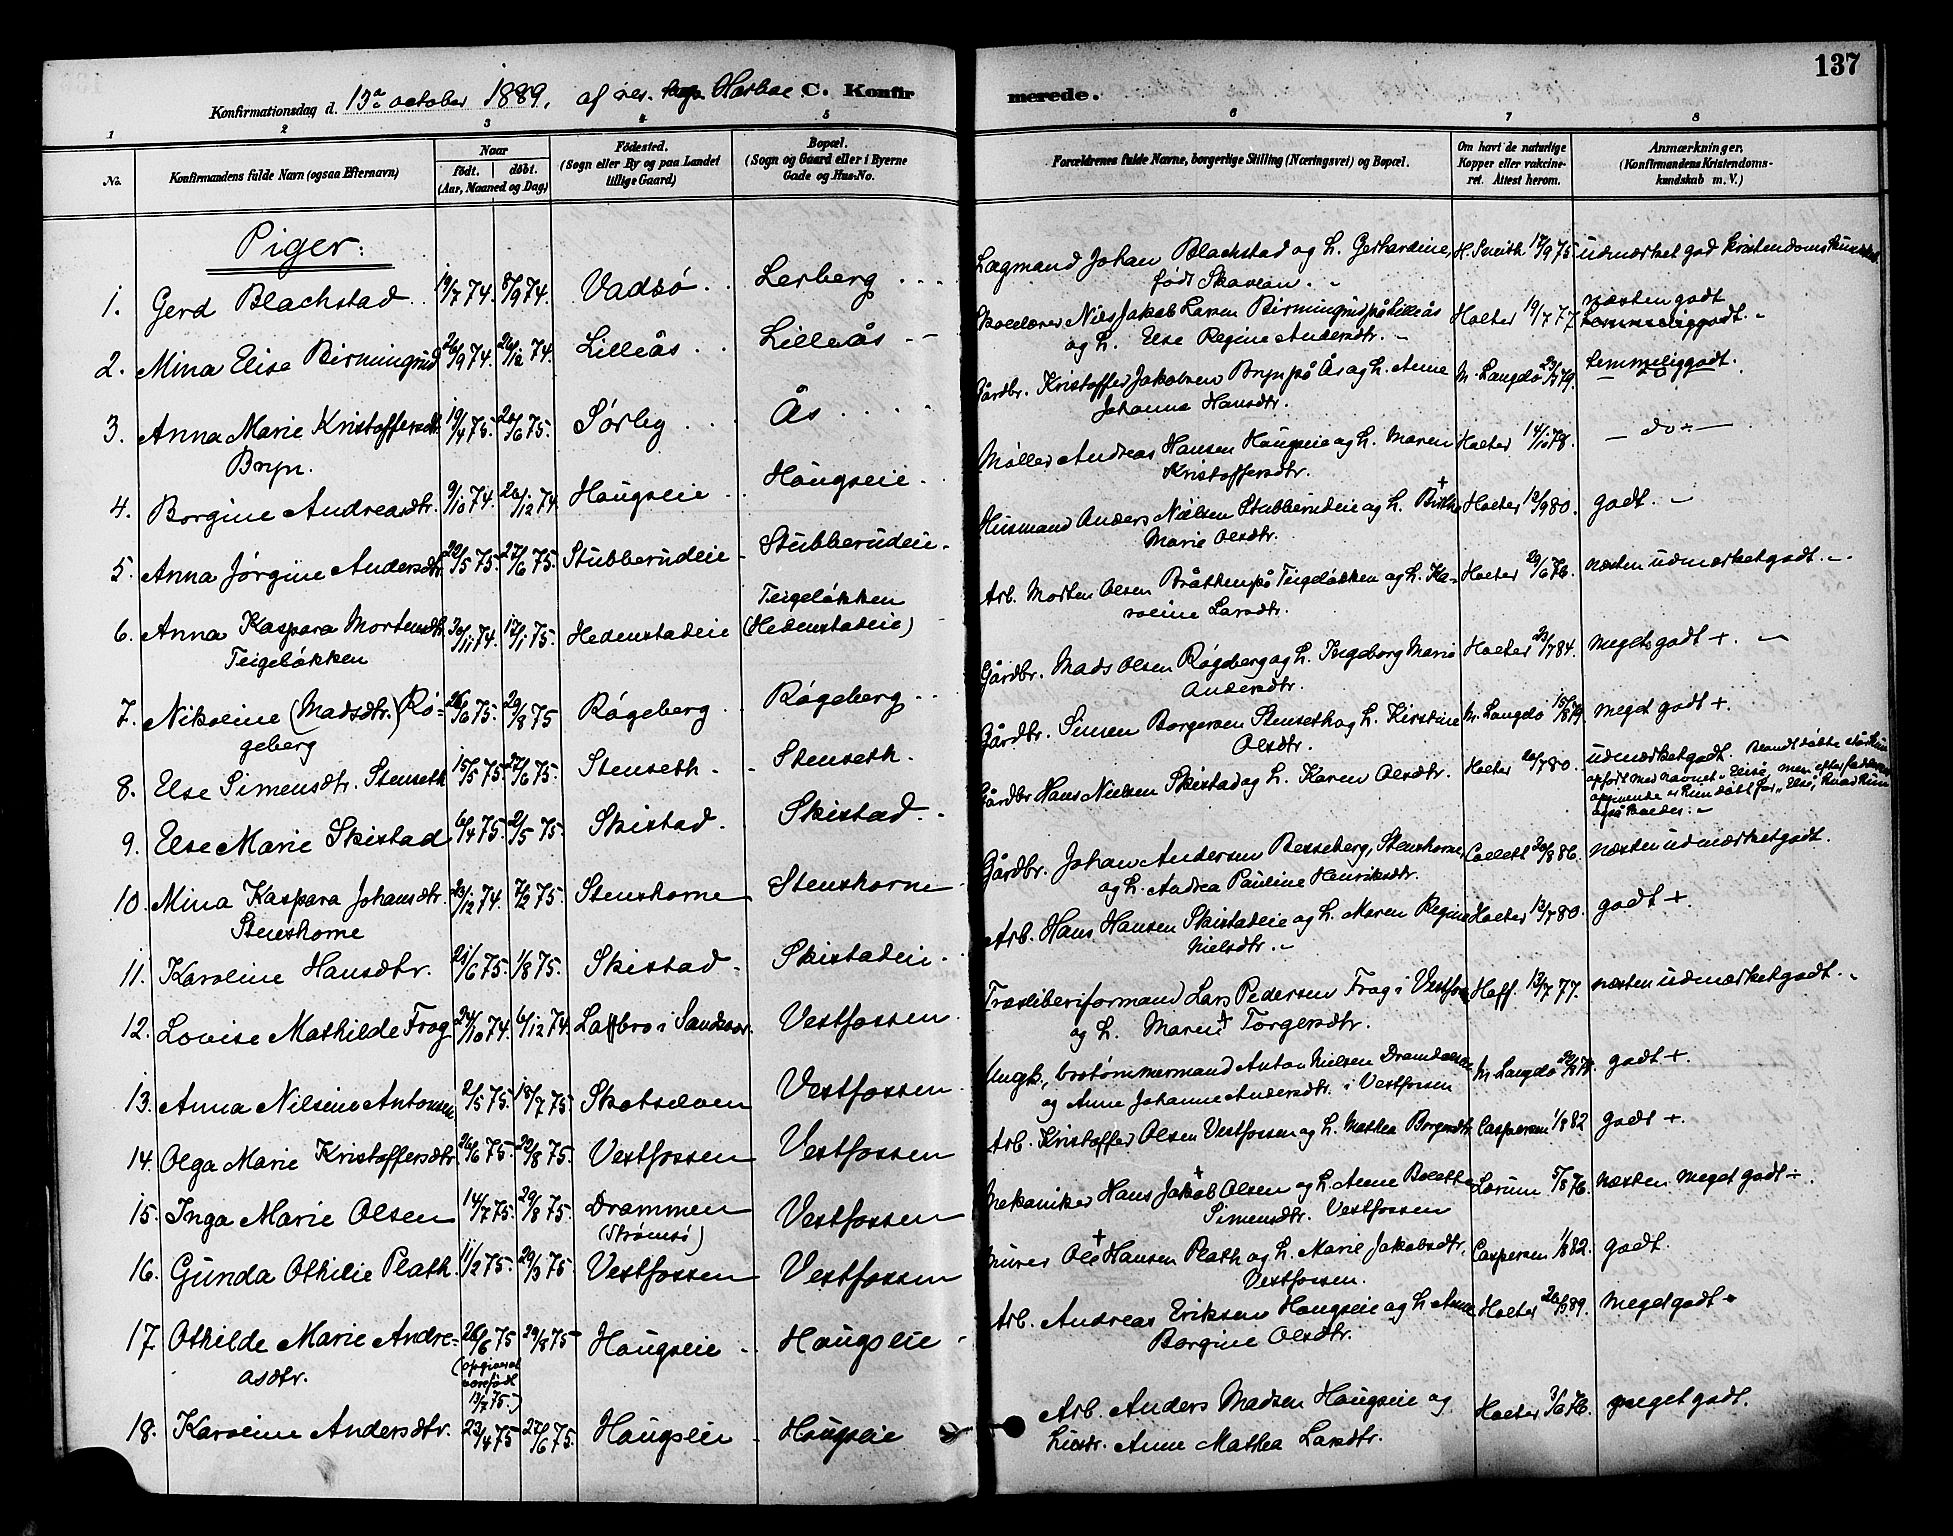 137
Konfirmationsdag d. 13de october 1889, af res. kap. C. Konfirmerede.
1 2 3 4 5 6 7 8
No.
Konfirmandens fulde Navn (ogsaa Efternavn)
Naar
födt. döbt.
(Aar, Maaned og Dag)
Födested.
(Sogn eller By og paa Landet
tillige Gaard)
Bopæl.
(Sogn og Gaard eller i Byerne
Gade og Hus-No.
Forældrenes fulde Navne, borgerlige Stilling (Næringsvei) og Bopæl.
Om havt de naturlige
Kopper eller vakcine-
ret. Attest herom.
Anmærkninger.
(Konfirmandens Kristendoms-
kundskab m. V.)
Piger:
1. Gerd Blachstad 19/7 74. 8/9 74. Vadsö Lerberg Lagmand Johan Blachstad og h. Gerhardine, 17/9 75 udmærket god kristendomskundskab
född Skavlan.
2. Mina Elise Birmingrud 26/9 74. 26/12 74. Lilleås Lilleås Skolelærer Nils Jakob Larsen Birmingrud på Lilleås Holter 19/7 77 næsten godt
temmelig godt.
og h. Else Regine Andersdtr.
3. Anna Marie Kristoffersdtr. 19/4 75. 20/6 75. Sörby Ås Gårdbr. Kristoffer Jakobsen Bryn på Ås og h. Anne M. Langdö 23/7 79. temmelig godt.
Bryn. Johanne Hansdtr.
4. Borgine Andreasdtr. 9/10 74. 26/12 74. Hougseie Hougseie Møller Andreas Hansen Hougseie og h. Maren Holter 14/10 78. do
Kristoffersdtr.
5. Anna Jörgine Andersdtr. 22/5 75. 27/6 75. Stubberudeie Stubberudeie Husmand Anders Nielsen Stubberudeie og h. Birthe Holter 12/9 80. godt.
Marie Olsdtr.
6. Anna Kaspara Mortensdtr. 30/11 74. 17/1 75. Hedenstadeie Teigeløkken
(Hedenstadeie) Arb. Morten Olsen Bråthen på Teigeløkken og h. Ka- Holter 29/6 76. næsten udmærket godt.
Teigeløkken roline Larsdtr.
7. Nikoline (Madsdtr.) Rö- 26/6 75. 29/8 75 Rögeberg Rögeberg Gårdbr. Mads Olsen Rögeberg og h. Ingeborg Marie Holter 23/7 84. meget godt +.
geberg Andersdtr.
8. Else Simensdtr. Stenseth 15/5 75. 27/6 75. Stenseth Stenseth. Gårdbr. Simen Borgersen Stenseth og h. Kirstine M. Langdö 15/8 79. meget godt +.
Olsdtr.
9. Else Marie Skistad 6/4 75. 2/5 75. Skistad Skistad Gårdbr. Hans Nielsen Skistad og h. Karen Olsdtr. Holter 20/7 80. udmærket godt. Blandt döbte står hun
opført med navnet "Elise", men efter faderens
opgivende er hun döbt for "Else", hvad hun
også kaldes.
10. Mina Kaspara Johansdtr. 23/12 74. 7/2 75. Stenshorne Stenshorne Gårdbr. Johan Andersen Besseberg, Stenshorne, Collett 20/8 86. næsten udmærket godt.
Stenshorne og h. Andrea Pauline Henriksdtr.
11. Karoline Hansdtr. 21/6 75. 1/8 75. Skistad Skistadeie Arb. Hans Hansen Skistadeie og h. Maren Regine Holter 13/7 80. godt +.
Nielsdtr.
12. Lovise Mathilde Frog 24/10 74. 6/12 74. Laffbro i Sandesvær. Vestfossen Træsliberiformand Lars Pedersen Frog i Vestfossen Hoff. 13/7 77. næsten udmærket godt.
og h. Maren Torgersdtr.
13. Anna Nilsine Antonsen 2/5 75. 18/7 75. Skotselven Vestfossen Ungk., brotømmermand Anton Nielsen M. Langdö godt +.
og Anne Johanne Andersdtr. i Vestfossen
14. Olga Marie Kristoffersdtr. 26/6 75. 22/8 75. Vestfossen Vestfossen Arb. Kristoffer Olsen Vestfossen og h. Mathea Borgersdtr. Caspersen 1/8 82 godt +.
15. Inga Marie Olsen 14/7 75. 29/8 75. Drammen Vestfossen Mekaniker Hans Jakob Olsen og h. Anne Bolette Lorum 5/8 76. næsten meget godt.
(Strømsö) Simensdtr. Vestfossen
16. Gunda Othilie Plath. 11/2 75. 29/3 75. Vestfossen Vestfossen Murer Ole Hansen Plath og h. Marie Jakobsdtr. Caspersen 1/8 82. godt.
Vestfossen.
17. Othilde Marie Andre- 26/6 75 29/8 75 Hougseie Hougseie Arb. Andreas Eriksen Hougseie og h. Anne Holter meget godt
asdtr. (opgives at
være født
13/7 75.) Borgine Olsdtr.
18. Karoline Andersdtr. 23/4 75 27/6 75. Hougseie Hougseie Arb. Anders Madsen Hougseie og Holter 3/6 76. meget godt.
hustr. Anne Mathea Larsdtr.